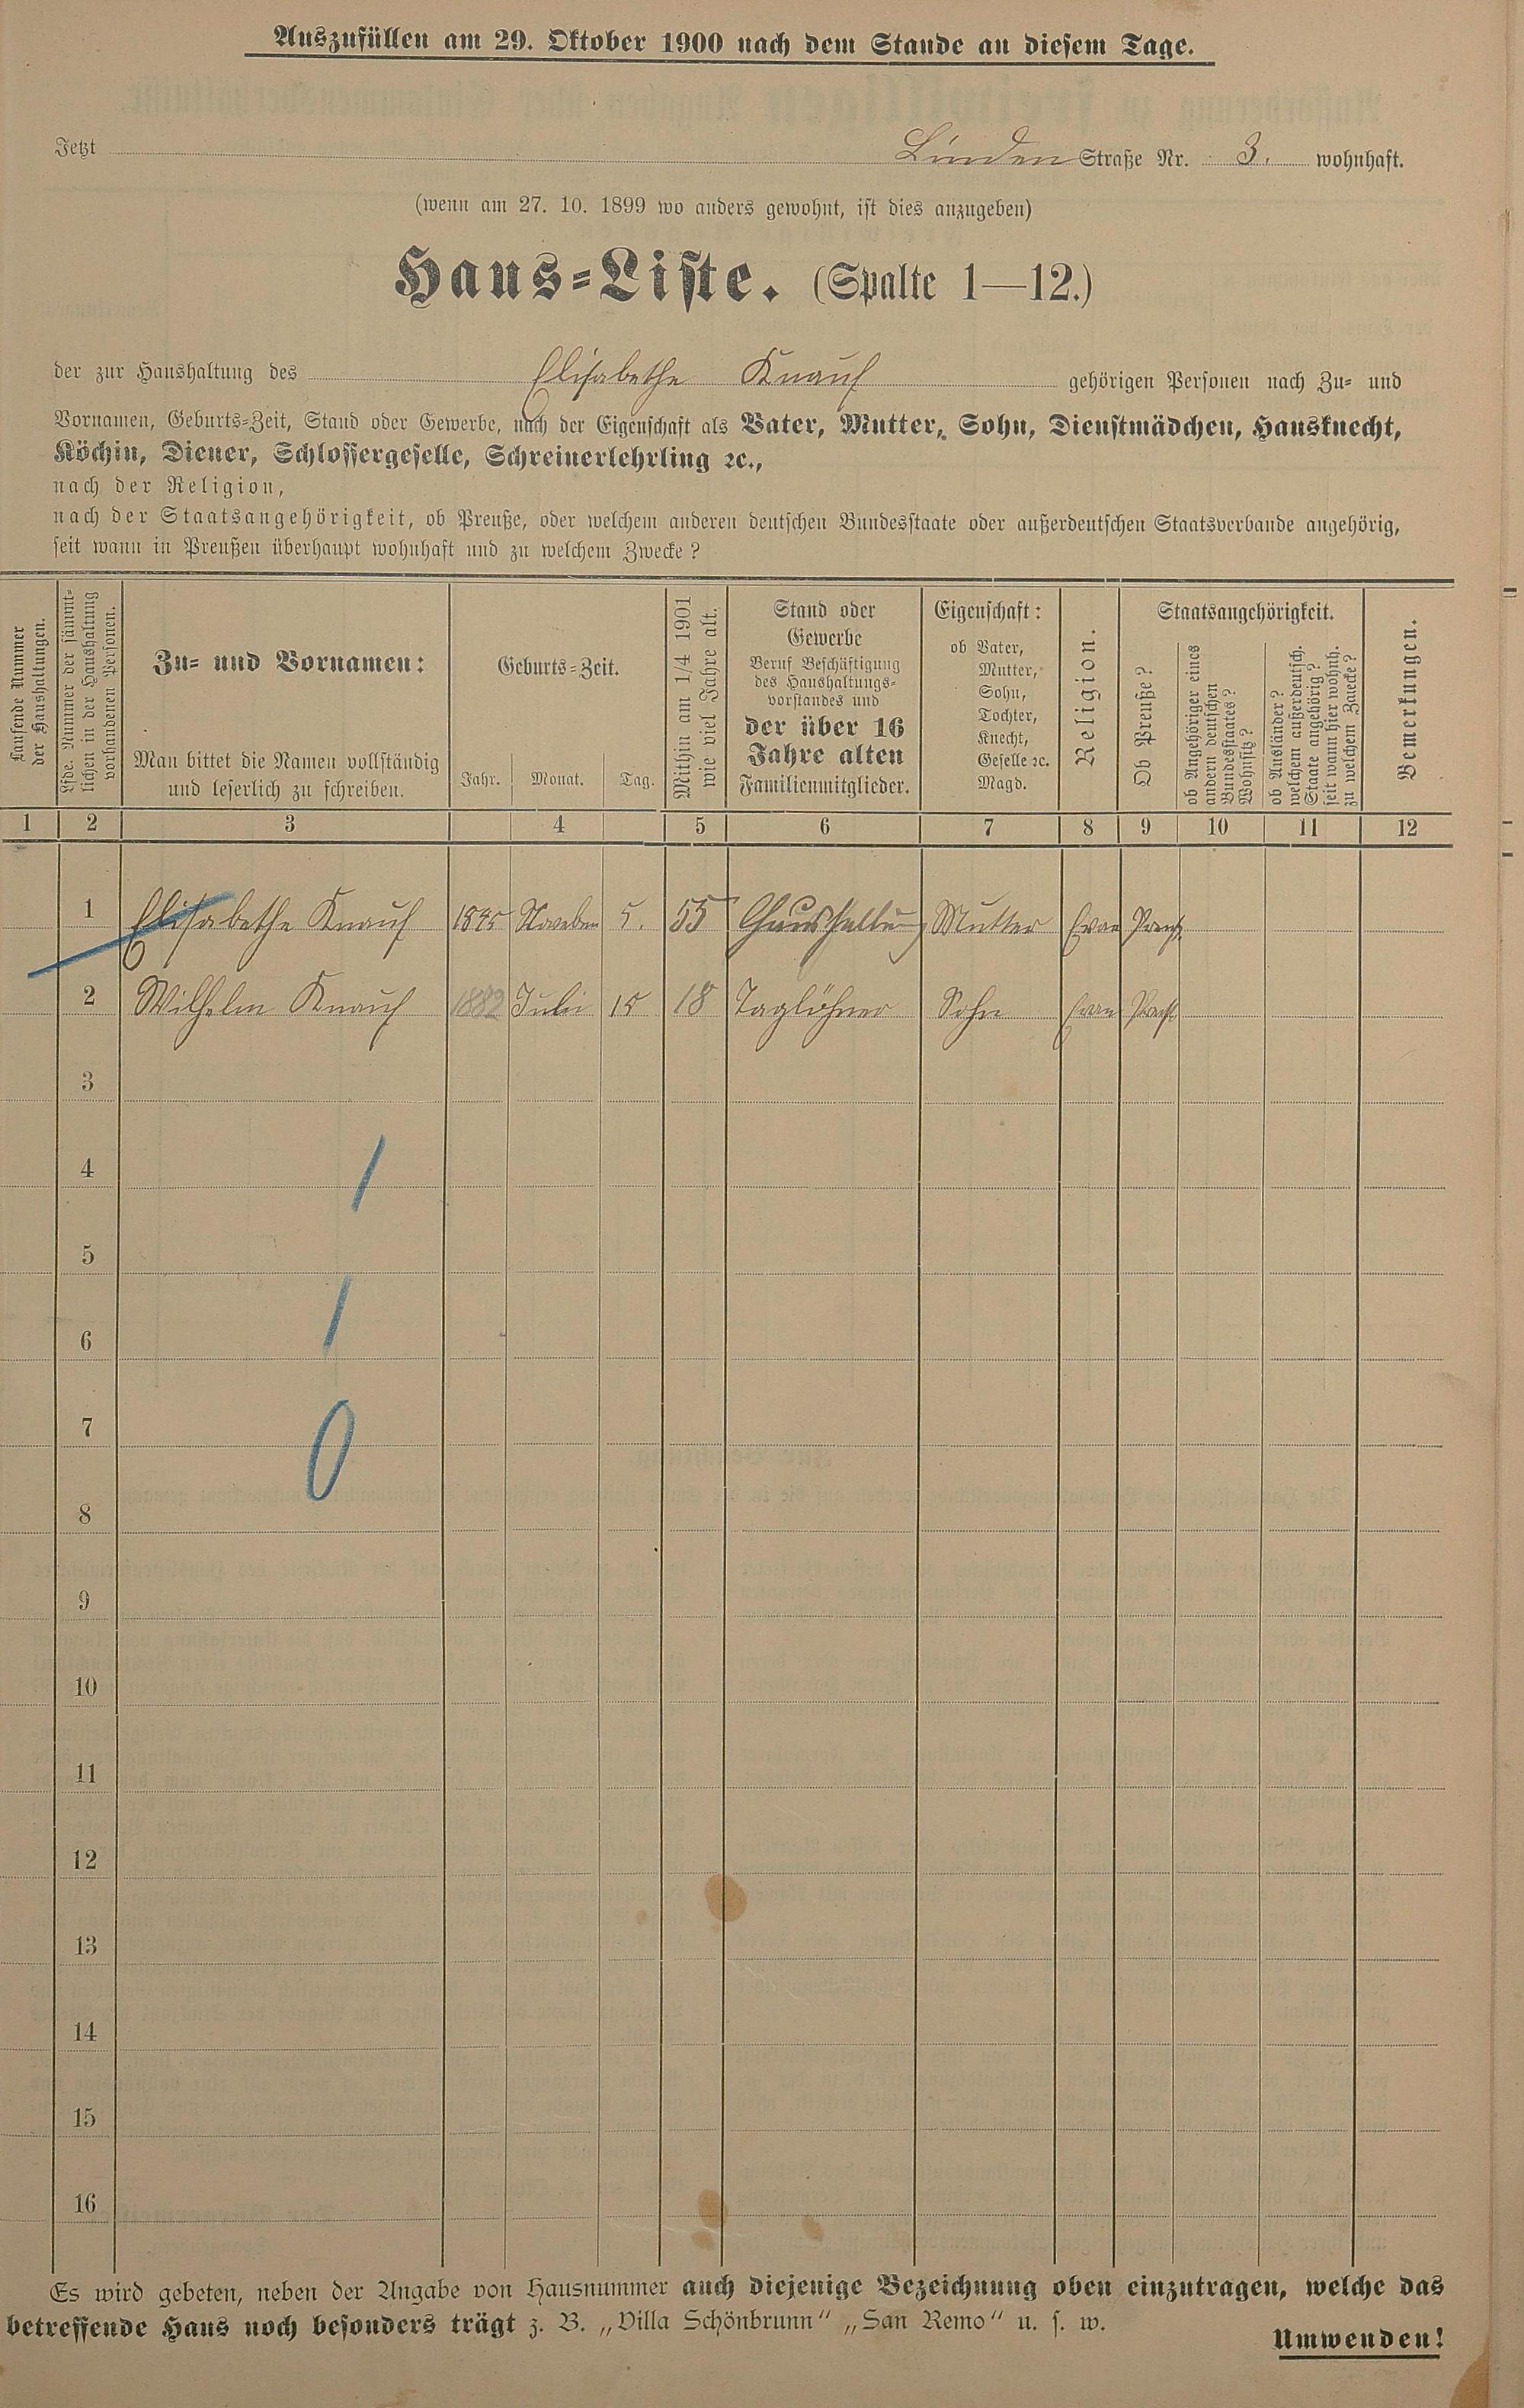 Auszufüllen am 29. Oktober 1900 nach dem Stande an diesem Tage.
Jetzt Linden Straße Nr. 3. wohnhaft.
(wenn am 27. 10. 1899 wo anders gewohnt, ist dies anzugeben)
Haus-Liste. (Spalte 1—12.)
der zur Haushaltung des Elisabethe Knauf gehörigen Personen nach Zu- und
Vornamen, Geburts-Zeit, Stand oder Gewerbe, nach der Eigenschaft als Vater, Mutter, Sohn, Dienstmädchen, Hausknecht,
Köchin, Diener, Schlossergeselle, Schreinerlehrling ꝛc.,
nach der Religion,
nach der Staatsangehörigkeit, ob Preuße, oder welchem anderen deutschen Bundesstaate oder außerdeutschen Staatsverbande angehörig,
seit wann in Preußen überhaupt wohnhaft und zu welchem Zwecke?
Laufende Nummer
der Haushaltungen.
Lfde. Nummer der sämmt-
lichen in der Haushaltung
vorhandenen Personen.
Zu- und Vornamen:
Man bittet die Namen vollständig
und leserlich zu schreiben.
Geburts-Zeit.
Jahr. Monat. Tag.
Mithin am 1/4 1901
wie viel Jahre alt.
Stand oder
Gewerbe
Beruf Beschäftigung
des Haushaltungs-
vorstandes und
der über 16
Jahre alten
Familienmitglieder.
Eigenschaft:
ob Vater,
Mutter,
Sohn,
Tochter,
Knecht,
Geselle ꝛc.
Magd.
Religion.
Staatsangehörigkeit.
Ob Preuße?
ob Angehöriger eines
andern deutschen
Bundesstaates?
Wohnsitz?
ob Ausländer?
welchem außerdeutsch.
Staate angehörig?
seit wann hier wohnh.
zu welchem Zwecke?
Bemerkungen.
1 2 3 4 5 6 7 8 9 10 11 12
1 Elisabethe Knauf 1845 5. 55 Haushaltung Mutter Evan Preuß
2 Wilhelm Knauf 1882 Juli 15 18 Taglöhner Sohn Evan Preuß
3
4
5
6
7
8
9
10
11
12
13
14
15
16
1
1
0
Es wird gebeten, neben der Angabe von Hausnummer auch diejenige Bezeichnung oben einzutragen, welche das
betreffende Haus noch besonders trägt z. B. „Villa Schönbrunn“ „San Remo“ u. s. w.
Umwenden!